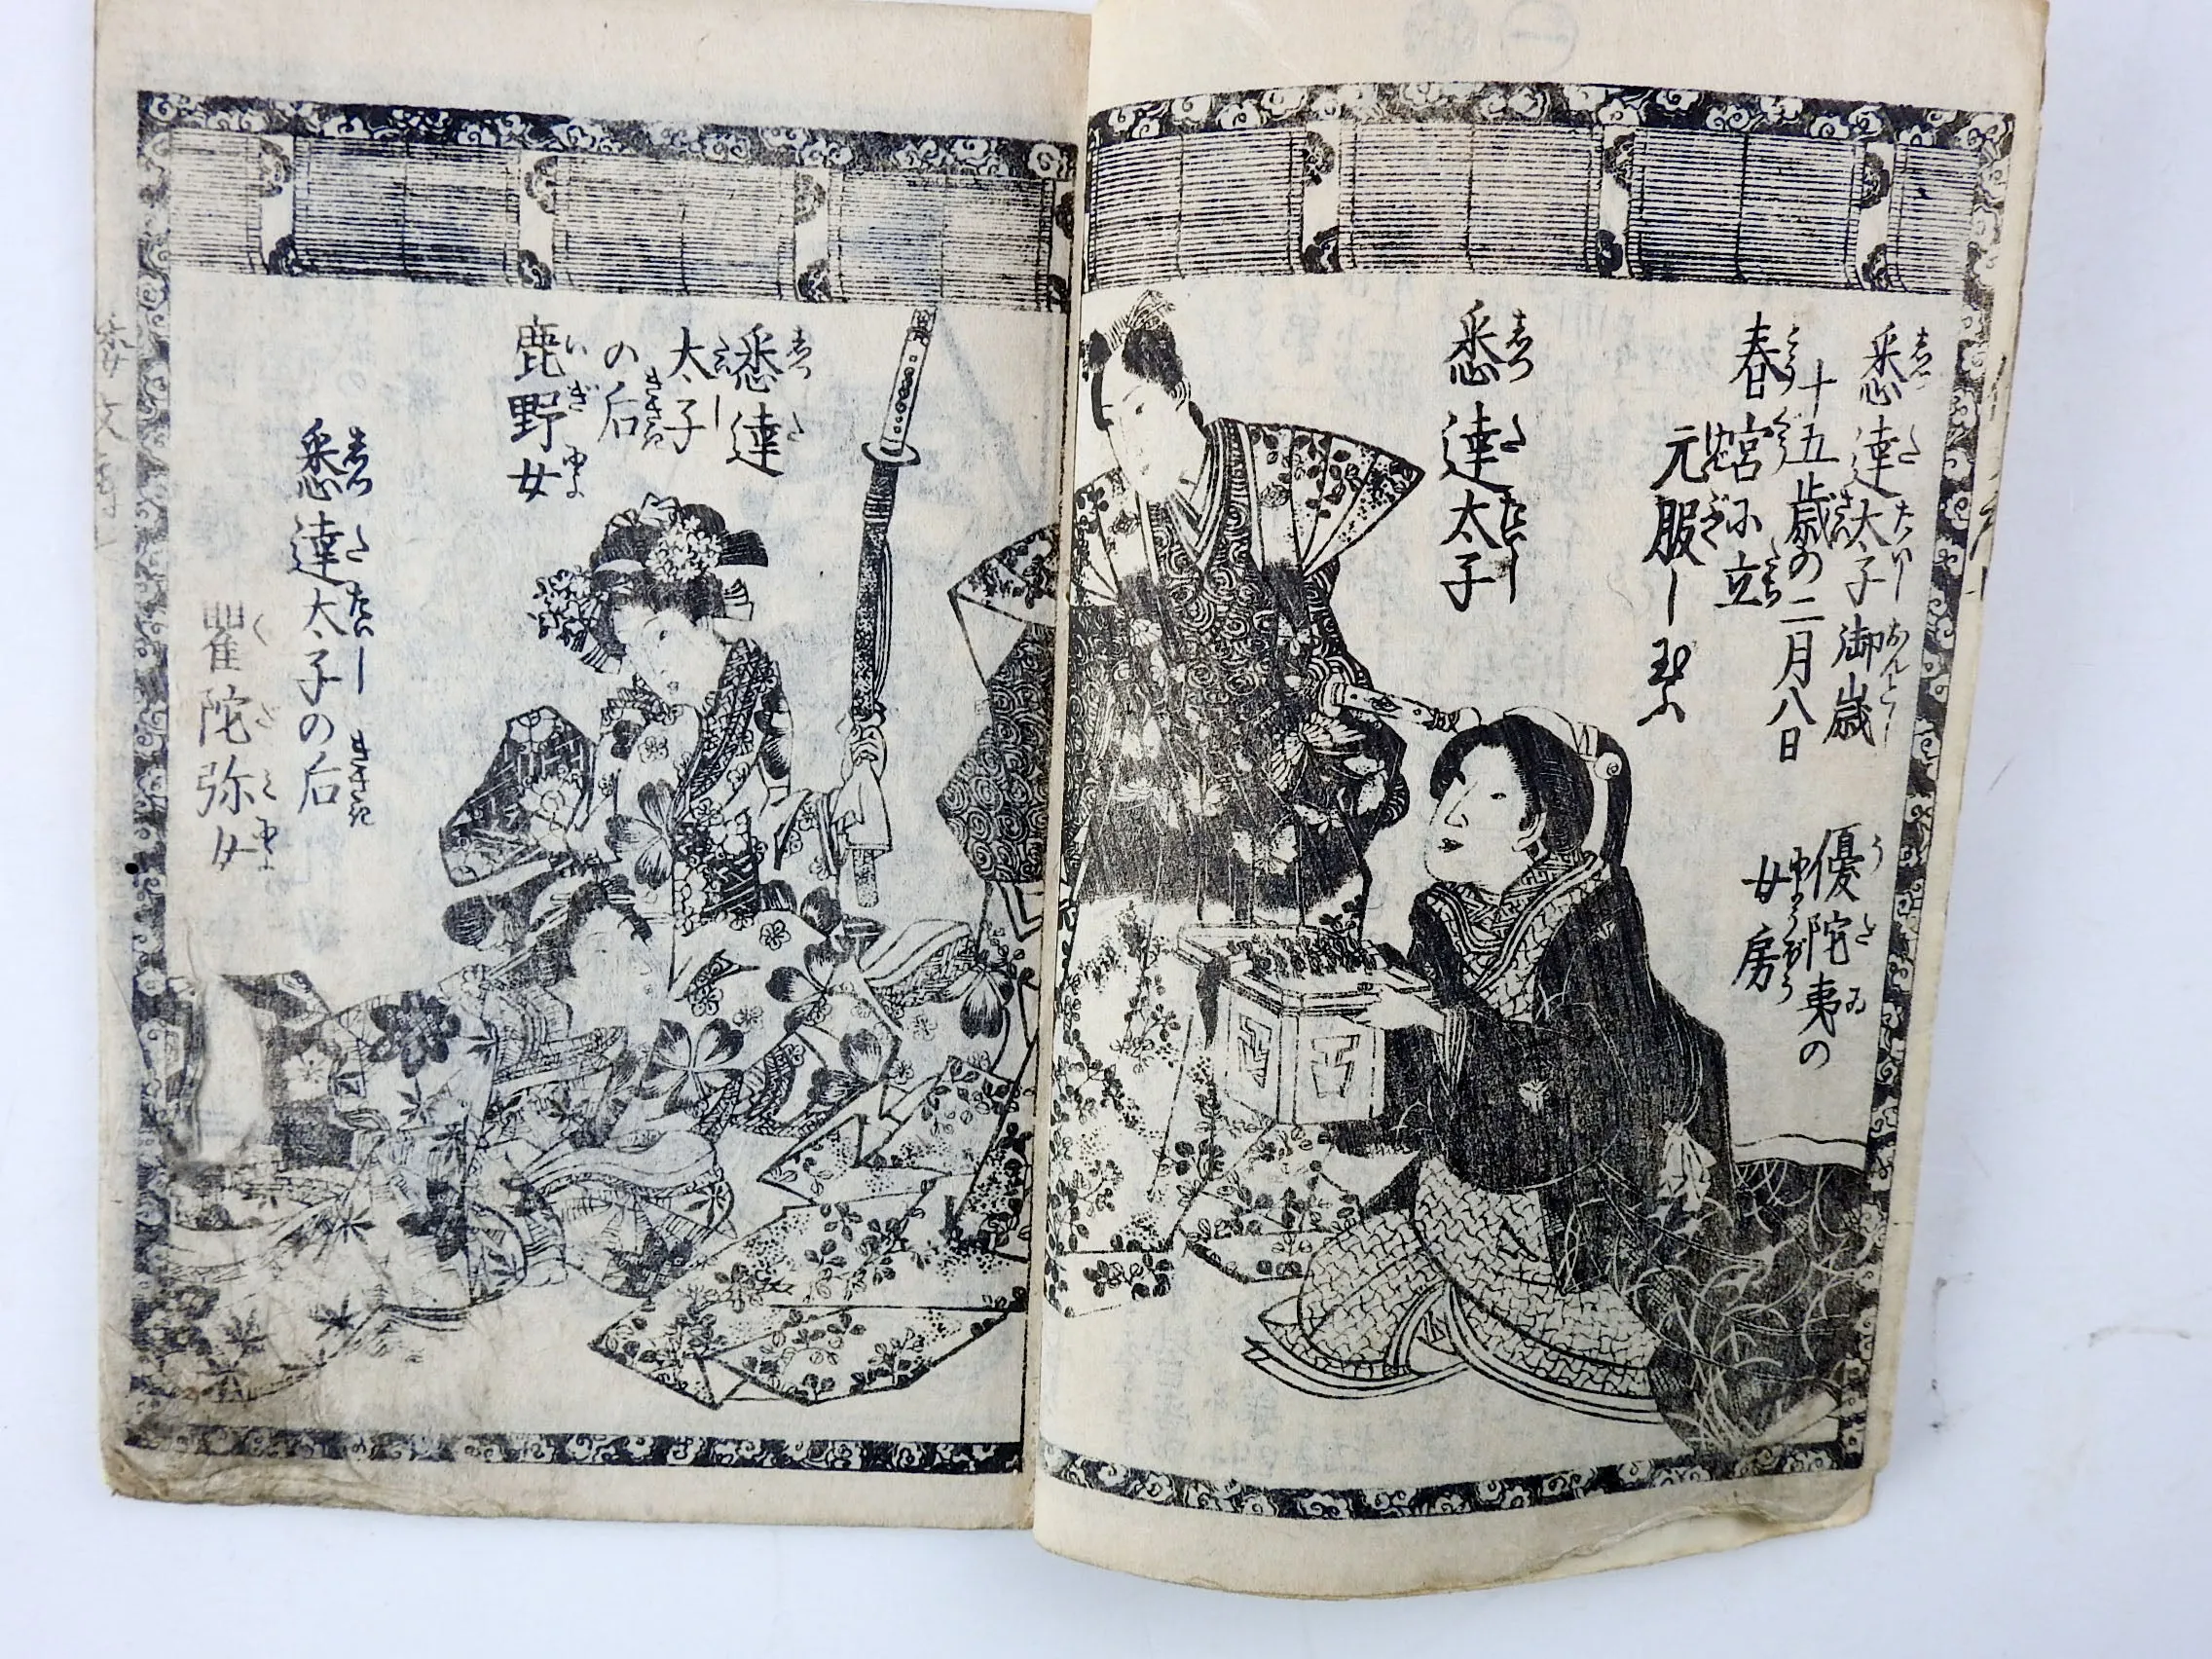 悉達太子御歳
十五歳の二月八日
春宮に立
元服し玉ふ
優陀夷の
女房
悉達太子
悉達
太子
の后
鹿野女
悉達太子の后
瞿陀弥女